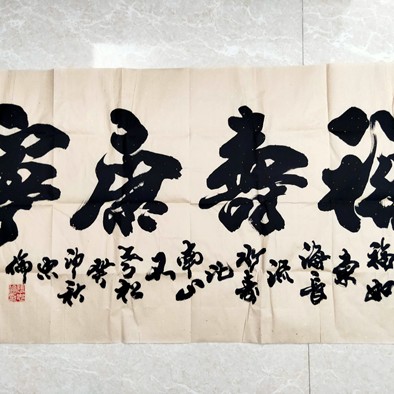 福壽康寧
福如東海長流水壽比南山不老松癸卯秋忠倫